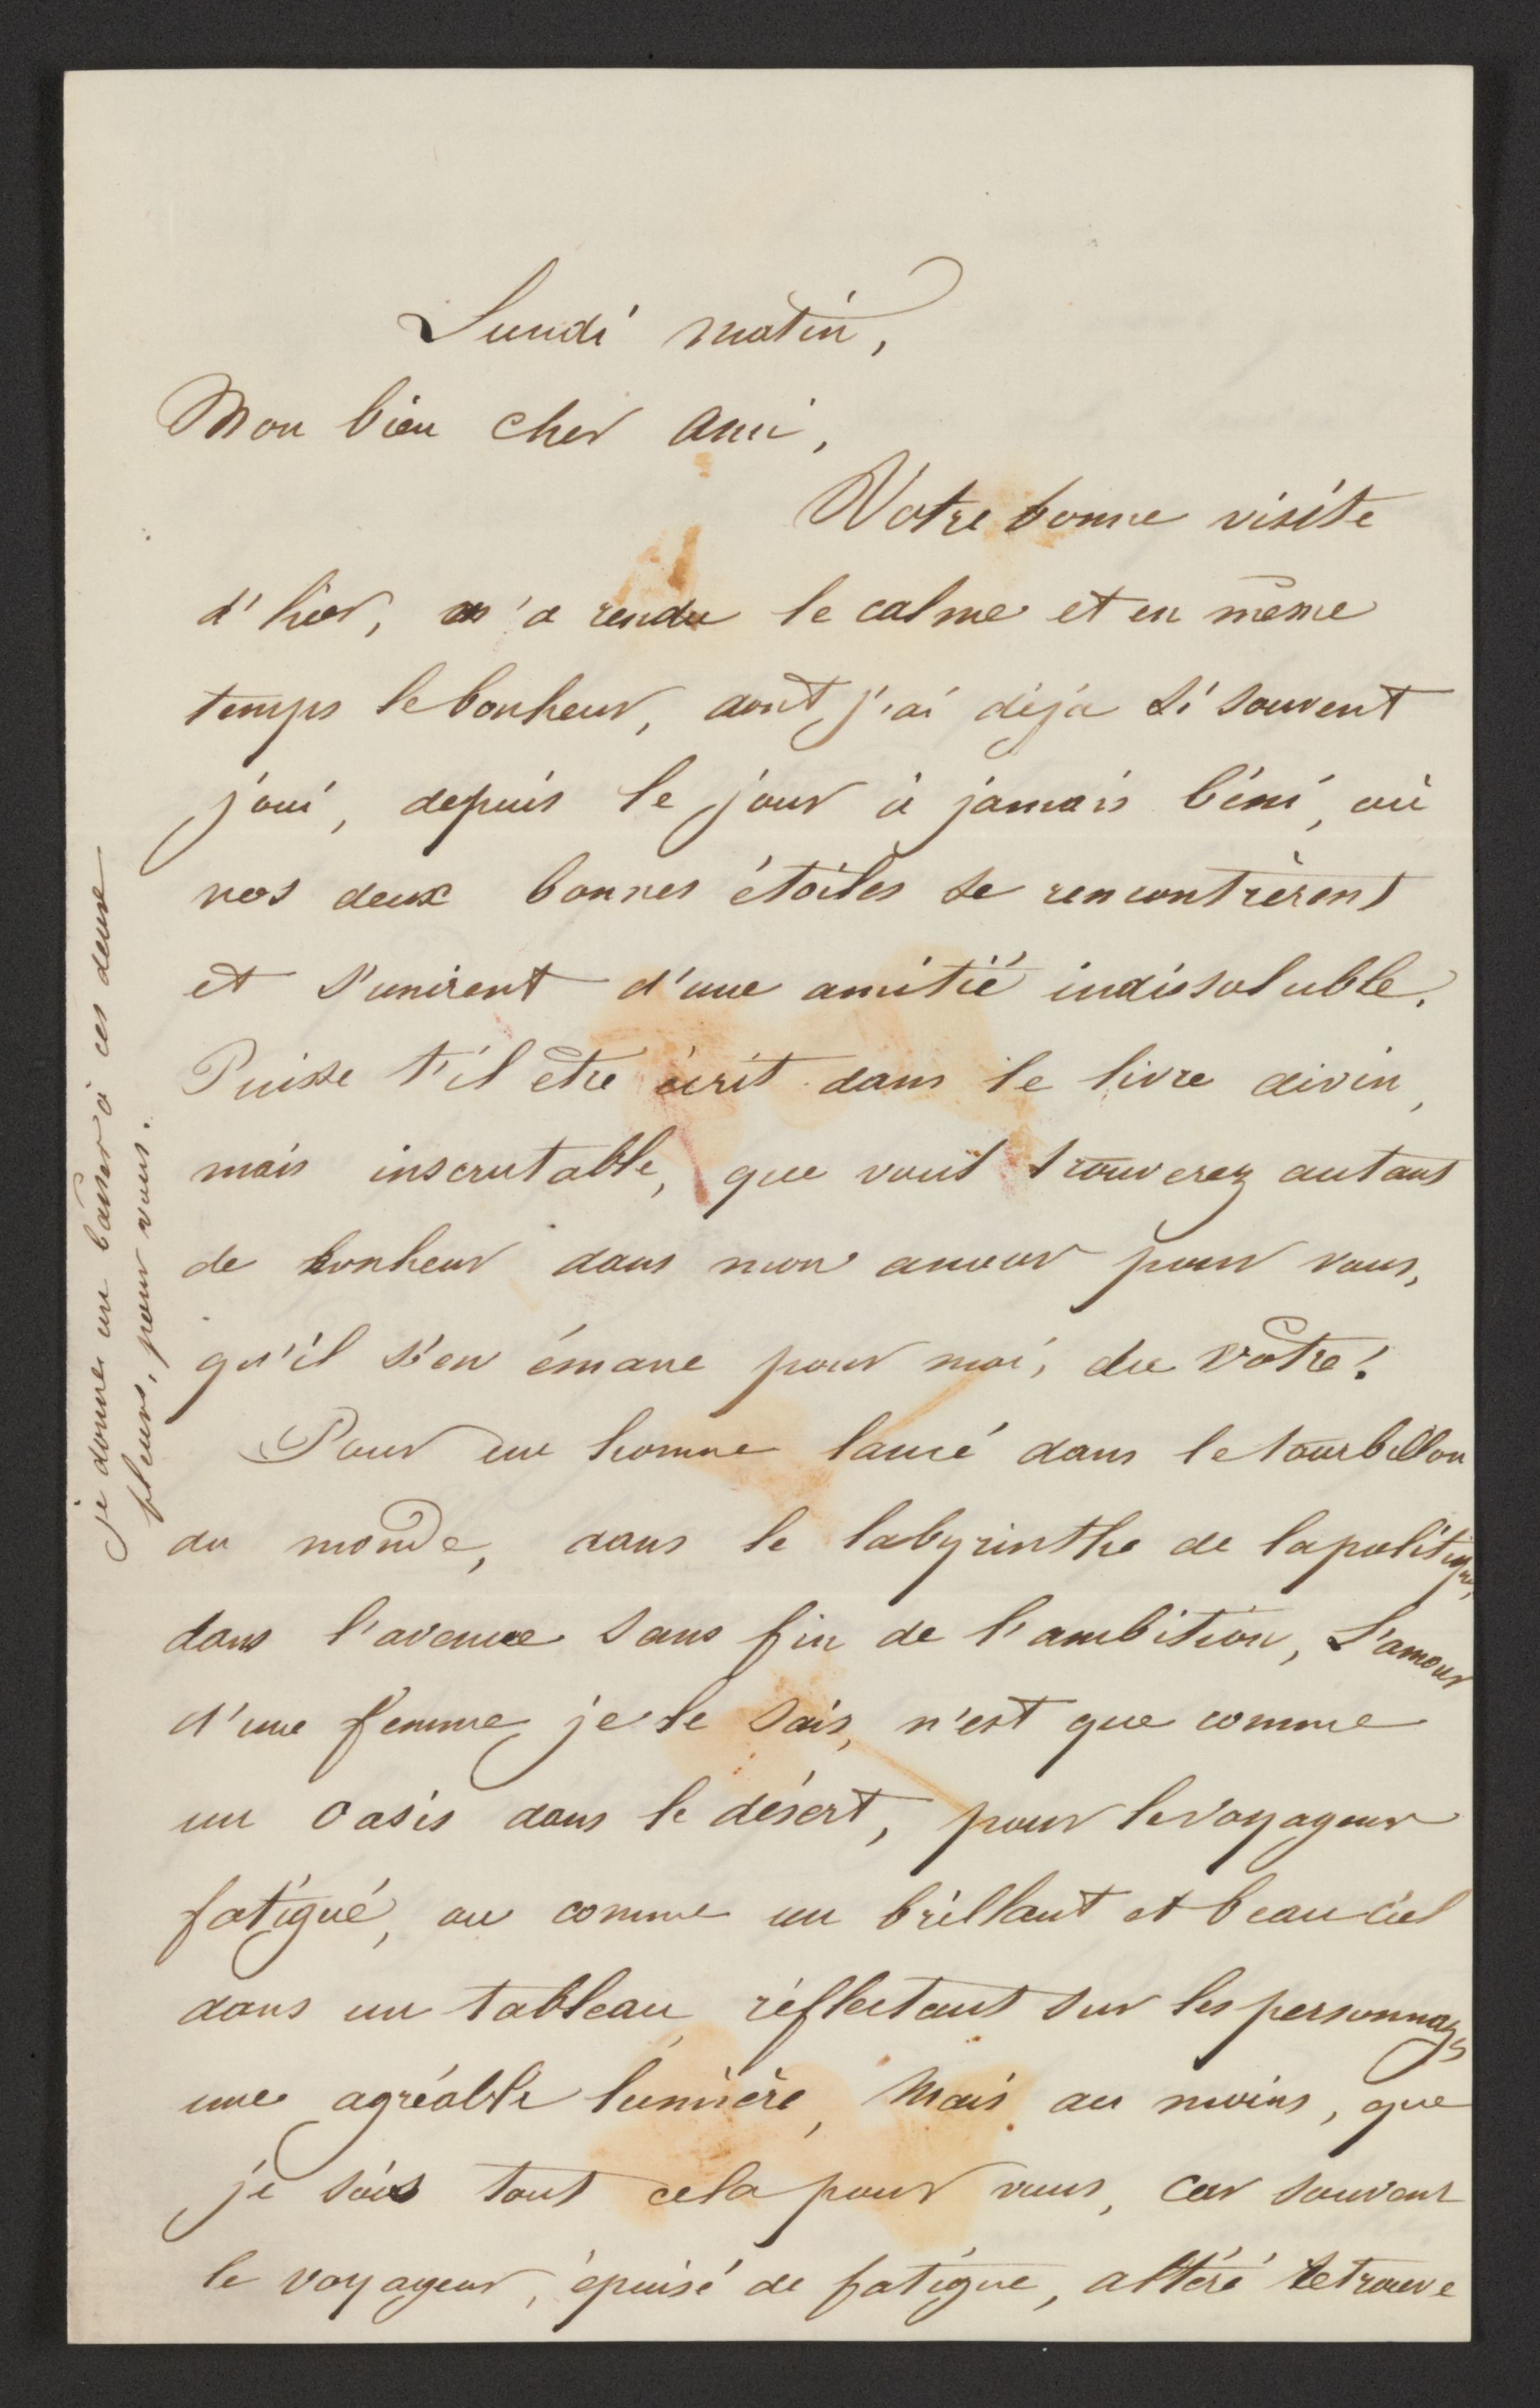 Lundi matin,
Mon bien cher ami,
Votre bonne visite
d'hier, m'a rendu le calme et en même
temps le bonheur, dont j'ai déjà si souvent
joui, depuis le jour à jamais béni, où
nos deux bonnes étoiles se rencontrèrent
et s'unirent d'une amitié indissoluble.
Puisse t'il être écrit dans le livre divin,
mais inscrutable, que vous trouverez autant
de bonheur dans mon amour pour vous,
qu'il s'en émane pour moi, du vôtre!
Pour un homme lancé dans le tourbillon
du monde, dans le labyrinthe de la politique,
dans l'avenue sans fin de l'ambition, L'amour
d'une femme, je le sais, n'est que comme
un oasis dans le désert, pour le voyageur
fatigué, ou comme un brillant et beau ciel
dans un tableau, réflectant sur les personnages
une agréable lumière, Mais au moins, que
je sois tout cela pour vous, car souvent
le voyageur, épuisé de fatigue, altéré retrouve
je donne un baiser à ces deux
fleurs, pour vous.